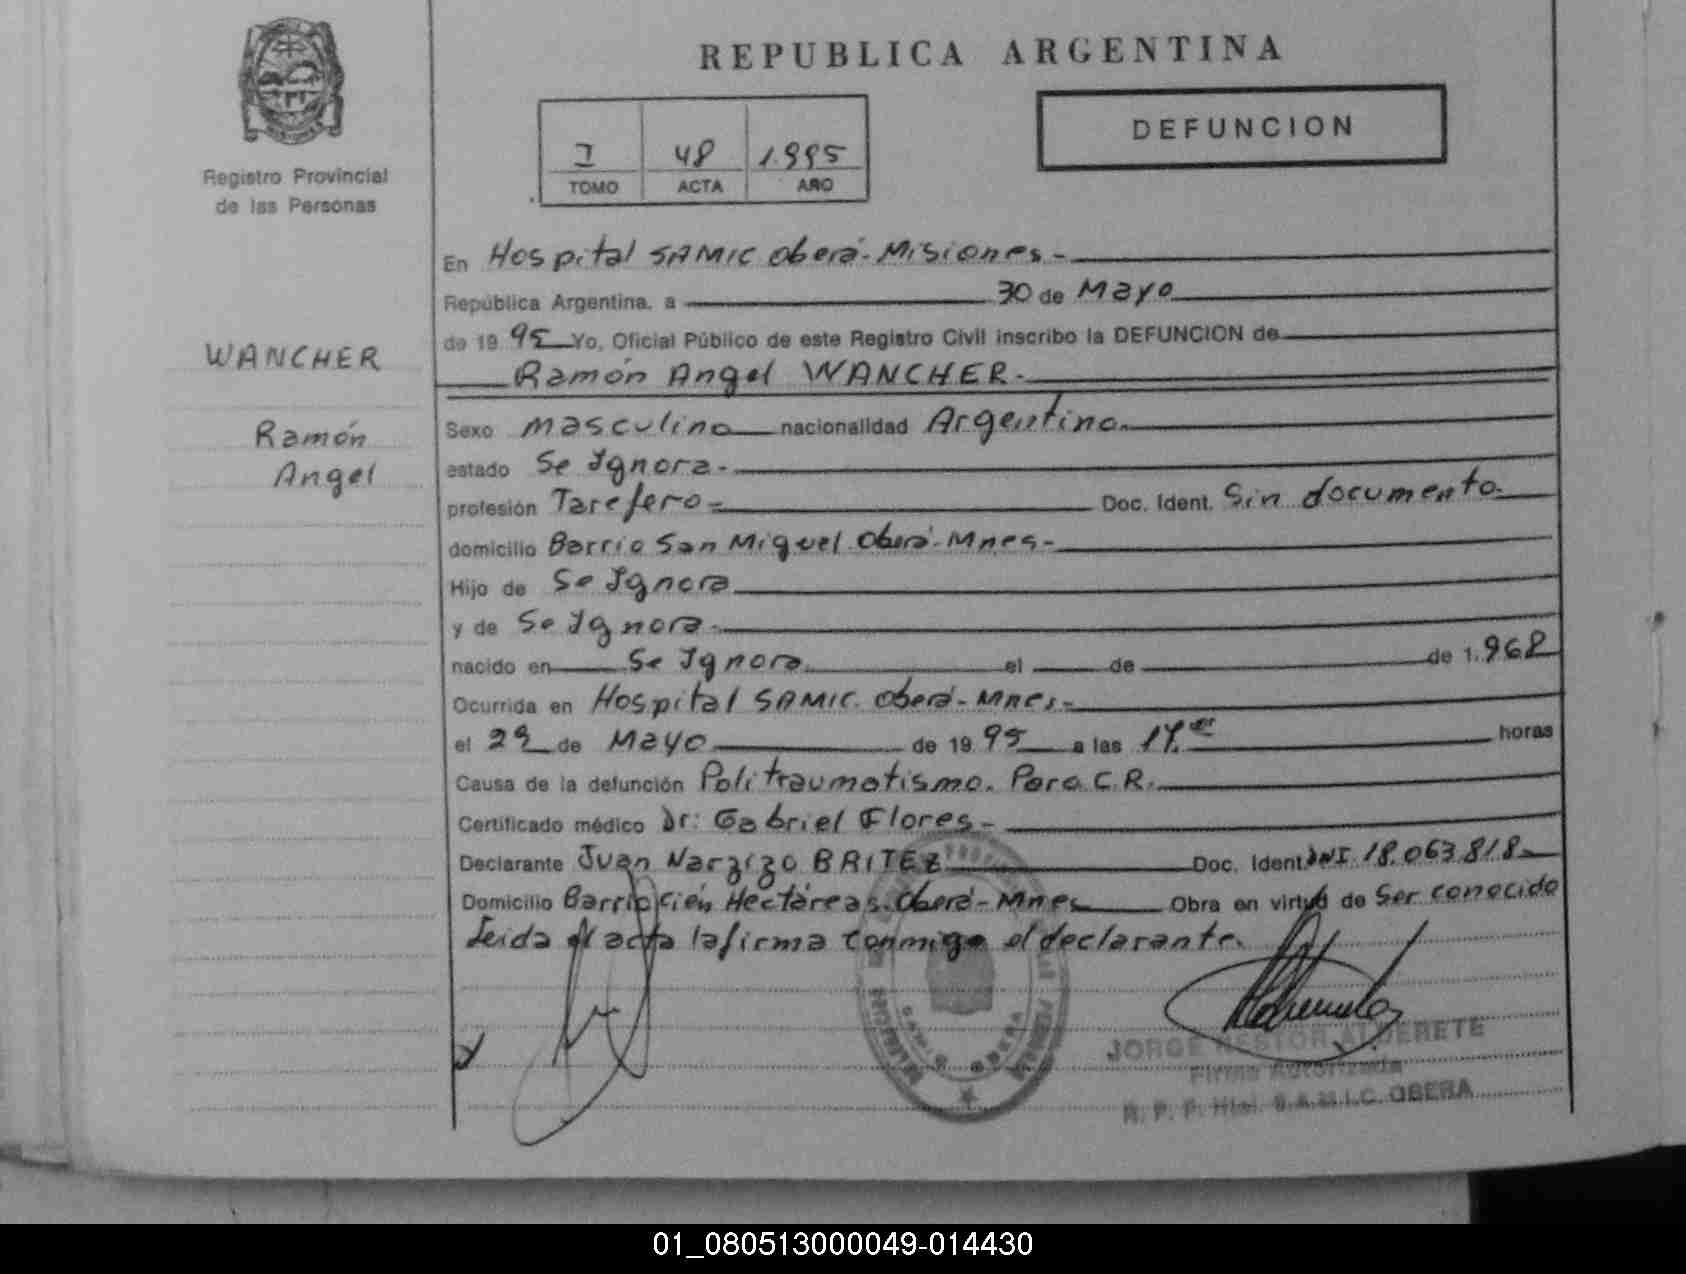 REPUBLICA ARGENTINA
DEFUNCION
I 48 1.995
TOMO ACTA AÑO
Registro Provincial
de las Personas
WANCHER
Ramón
Angel
En Hospital SAMIC Oberá-Misiones-
República Argentina, a 30 de Mayo
de 19 95 Yo, Oficial Público de este Registro Civil inscribo la DEFUNCION de
Ramón Angel WANCHER.
Sexo masculino nacionalidad Argentino.
estado Se Ignora.
profesión Tarefero- Doc. Ident. Sin documento.
domicilio Barrio San Miguel Oberá-Mnes-
Hijo de Se Ignora
y de Se Ignora.
nacido en Se Ignora el de de 1.968
Ocurrida en Hospital SAMIC. Oberá-Mnes-
el 29 de Mayo de 19 95 a las horas
Causa de la defunción Politraumatismo. Paro C.R.
Certificado médico Dr: Gabriel Flores-
Declarante Juan Narzizo BRITEZ Doc. Ident DNI 18.063.818-
Domicilio Barrio Cién Hectáreas. Oberá-Mnes Obra en virtud de Ser conocido
Leida el acta la firma conmigo el declarante.
JORGE NESTOR ALDERETE
Firma Autorizada
R. P. P. Htal. S.A.M.I.C. OBERA
01_080513000049-014430